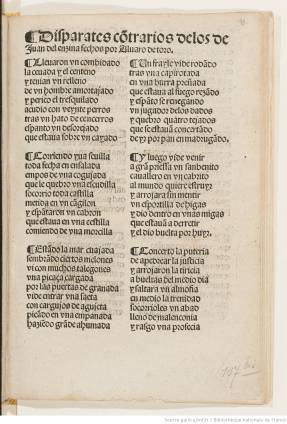 ¶Disparates cõtrarios delos de
Juan del enzina fechos por Aluaro de toro.
¶Lleuaron vn combidado
la ceuada y el centeno
y tenian vn relleno
de vn hombre amortajado
y perico el tresquilado
acudio con veynte pierros
tras vn hato de cencerros
espanto vn desorejado
que estaua sobre vn cayado
¶Corriendo vna seuilla
toda fecha en ensalada
empos de vna cogujada
que le quebro vna escudilla
socorrio toda castilla
metida en vn cãgilon
y espãtaron vn cabron
que estaua en vna cestilla
comiendo de vna morcilla
¶Estãdo la mar cuajada
sembrado ciertos melones
vi con muchos talegones
vna picaça cargada
por las puertas de granada
vide entrar vna saeta
con cargujos de agujeta
picãdo en vna empanada
haziẽdo grãde ahumada
¶Un frayle vi de rondõ
tras vna capirotada
en vna burra preñada
que estaua al fuego rezãdo
y espãto se renegando
vn jugador delos dados
y quebro quatro tejados
que se estauã concertãdo
de yr por pan en madrugãdo.
¶Y luego vide venir
a grã priessa vn sanbenito
cauallero en vn cabrito
al mundo quiere
y arrojara sin mentir
vn esportilla de higas
y dio dentro en vnas migas
que estauã a derretir
y el dio buelta por huyr.
¶Concerto la puteria
de apedrear la justicia
y arrojaron la tiricia
a bueltas del medio dia
y saltara vn almofia
en medio la trenidad
socorrioles vn abad
lleno de malenconia
y rasgo vna profecia
107 bis
Source gallica.bnf.fr / Bibliothèque nationale de France